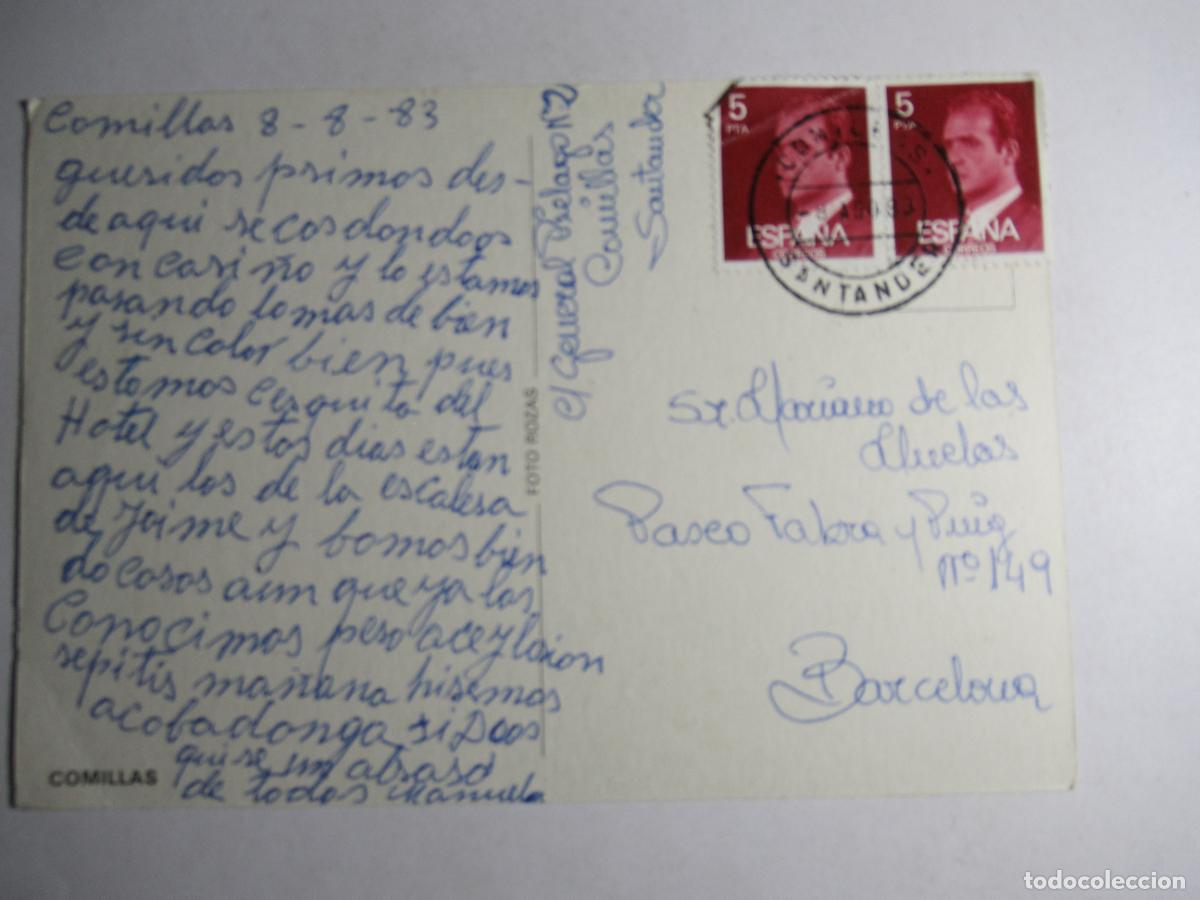 Comillas 8-8-83
queridos primos des-
de aqui se cosdondoos
con casiño y lo estamos
pasando lomas de bien
y sin color bien pues
estamos cesquita del
Hotel y estos dias estan
aqui los de la escalesa
de Jaime y bomos bien
do cosos aun que ya los
Conocimos peso a
sepitis mañana hisemos
a cobadonga si Doos
quise un absaso
de todos Manuela
COMILLAS
FOTO ROZAS
c/ General Nº2
Comillas
Santander
5
PTA
ESPAÑA
CORREOS
5
PTA
ESPAÑA
CORREOS
COMILLAS.
8 AGO 83
SANTANDER
Sr. Mariano de las
Muelas
Paseo Fabra y Puig
Nº 149
Barcelona
todocoleccion